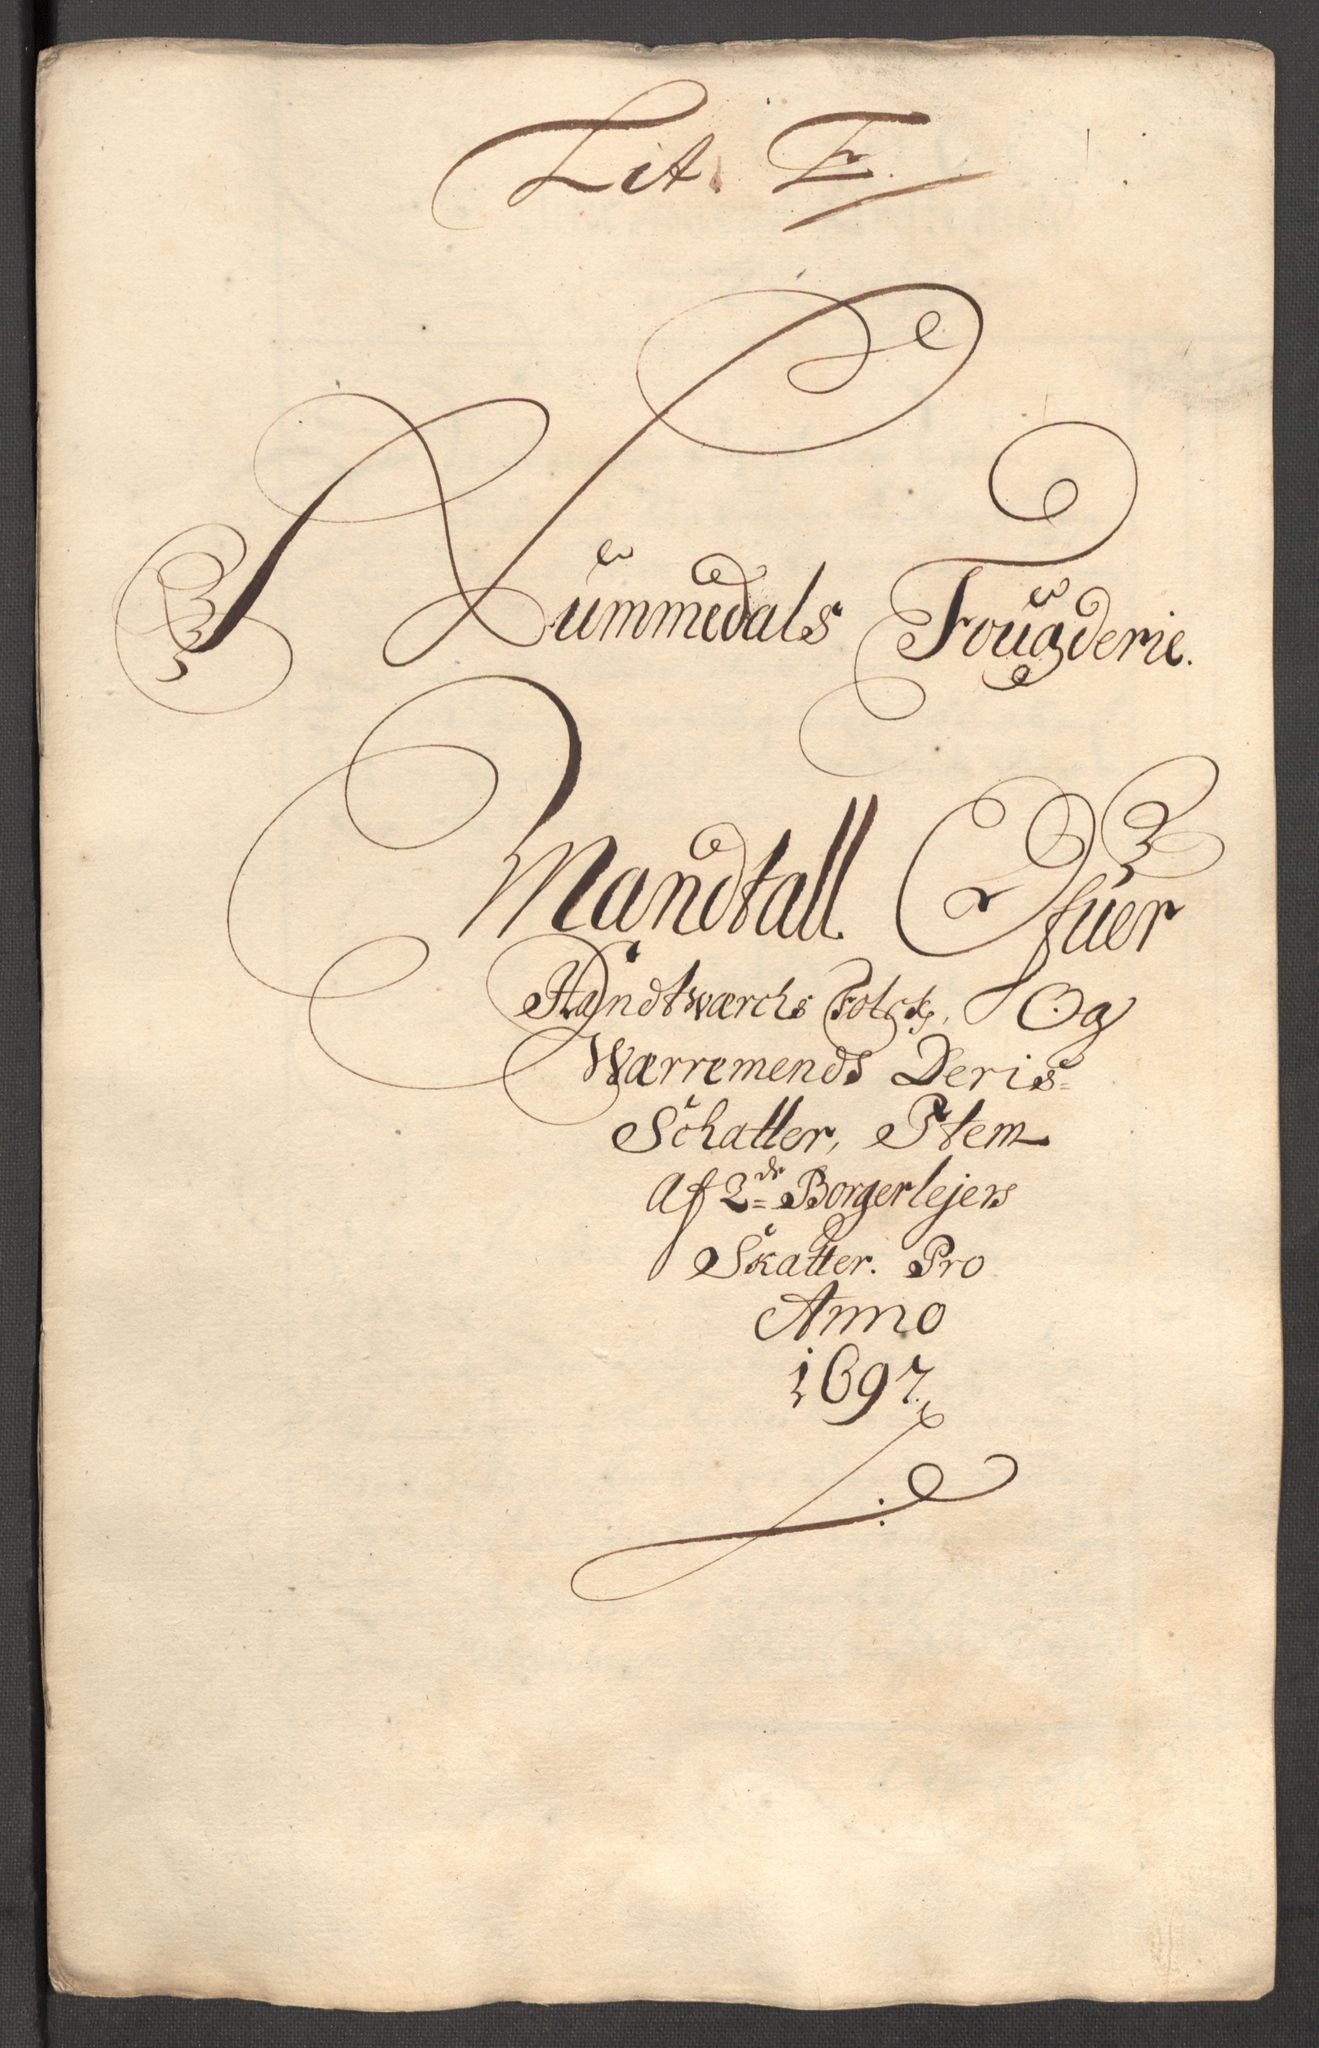 Lit. F.
Nummedals Fougderie.
Mandtall Ofuer
Handtwærchs Folch, Og
Wærremends Deris
Schatter, Item
Af 2de Borgerlejers
Skatter. Pro
Anno
1697.